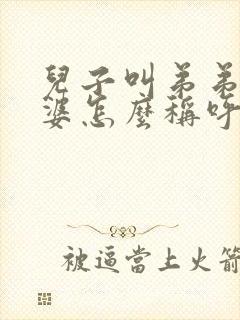 兒子叫弟弟
婆怎麼稱呼
被逼當上火箭